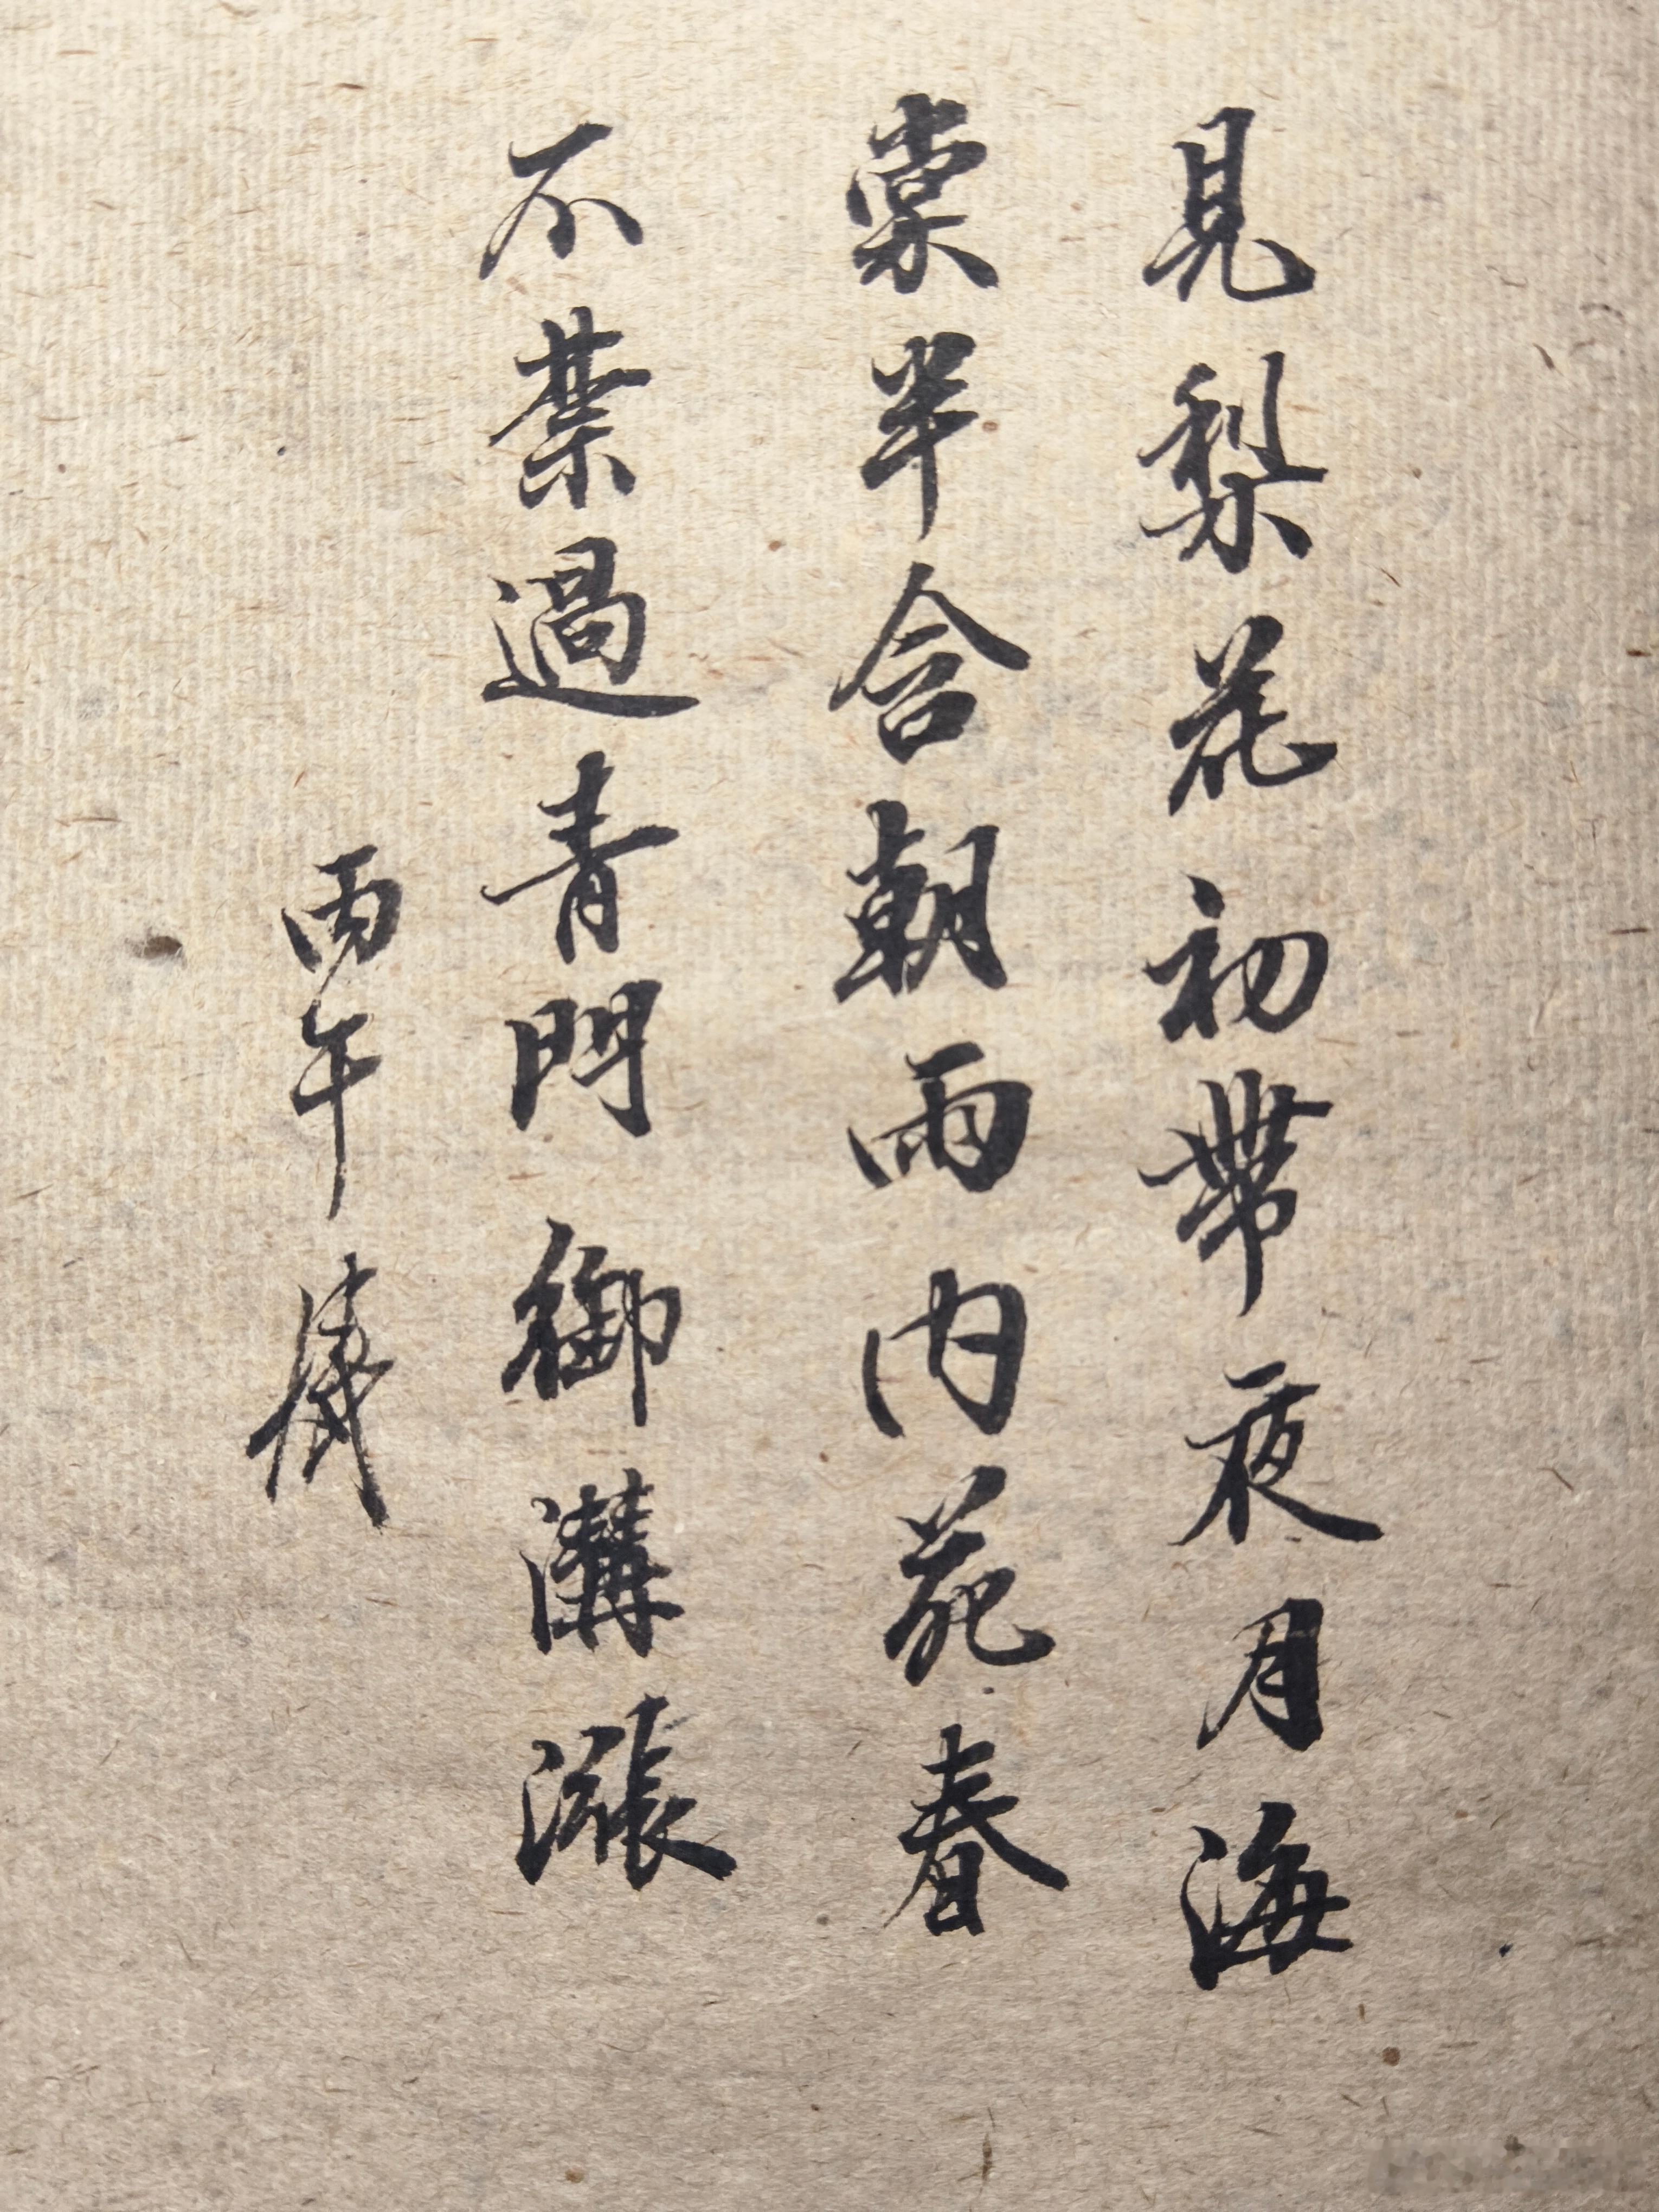 見梨花初帶夜月海
棠半含朝雨內苑春
不禁過青門御溝漲
丙午